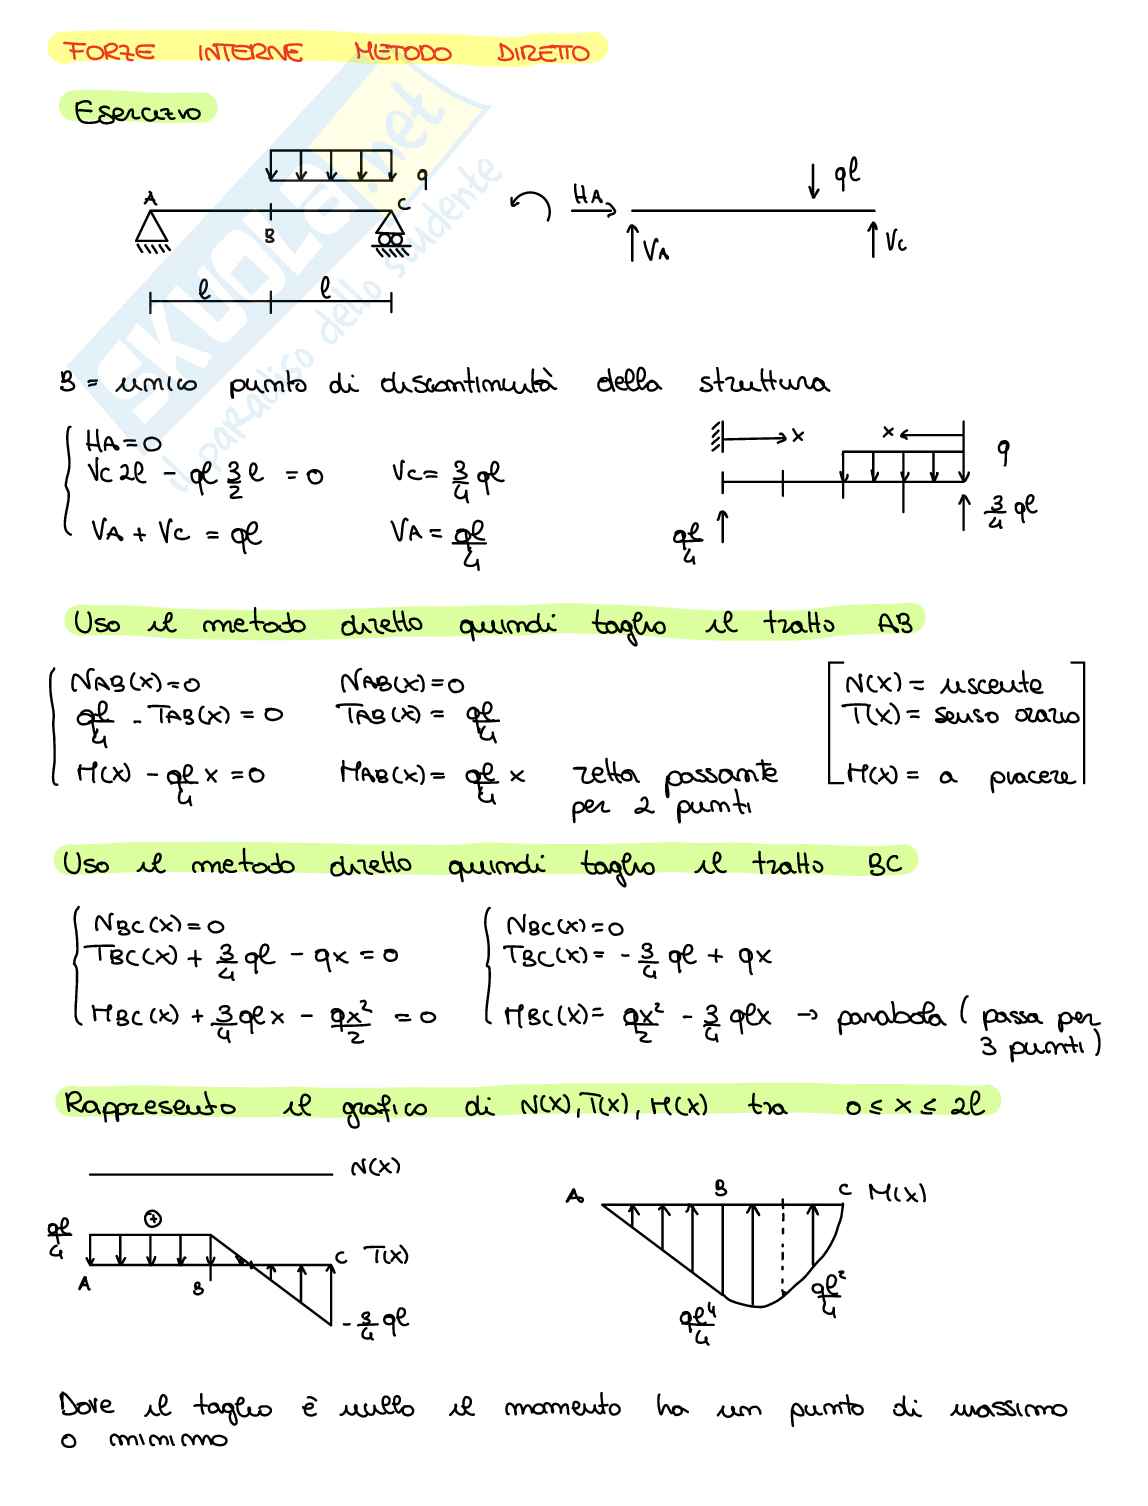 FORZE INTERNE METODO DIRETTO
Esercizio
q
A
B
C
l l
HA
VA
ql
VC
B = unico punto di discontinuità della struttura
HA = 0
VC 2l - ql 3/2 l = 0 VC = 3/4 ql
VA + VC = ql VA = ql/4
x x
q
ql/4
3/4 ql
Uso il metodo diretto quindi taglio il tratto AB
NAB(x) = 0 NAB(x) = 0
ql/4 - TAB(x) = 0 TAB(x) = ql/4
M(x) - ql/4 x = 0 MAB(x) = ql/4 x retta passante
per 2 punti
N(x) = uscente
T(x) = senso orario
M(x) = a piacere
Uso il metodo diretto quindi taglio il tratto BC
NBC(x) = 0 NBC(x) = 0
TBC(x) + 3/4 ql - qx = 0 TBC(x) = - 3/4 ql + qx
MBC(x) + 3/4 qlx - qx²/2 = 0 MBC(x) = qx²/2 - 3/4 qlx → parabola (passa per
3 punti)
Rappresento il grafico di N(x), T(x), M(x) tra 0 ≤ x ≤ 2l
N(x)
ql/4
+
A
B
C T(x)
- 3/4 ql
A B C M(x)
ql⁴/4
ql²/4
Dove il taglio è nullo il momento ha un punto di massimo
o minimo
SKUOLA.net
il paradiso dello studente